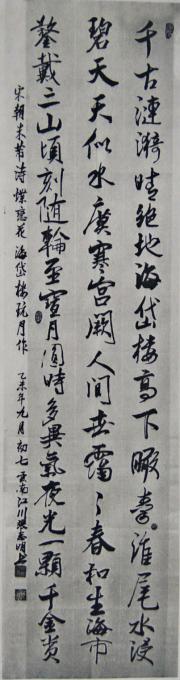 千古漣漪晴絕地海岱樓高下瞰秦淮尾水浸
碧天天似水廣寒宮闕人間世靄々春和生海市
鰲戴三山頃刻随輪至寶月圓時多異氣夜光一顆千金貴
宋朝米芾詩蝶戀花海岱樓玩月作 乙未年九月初七雲南江川張志明